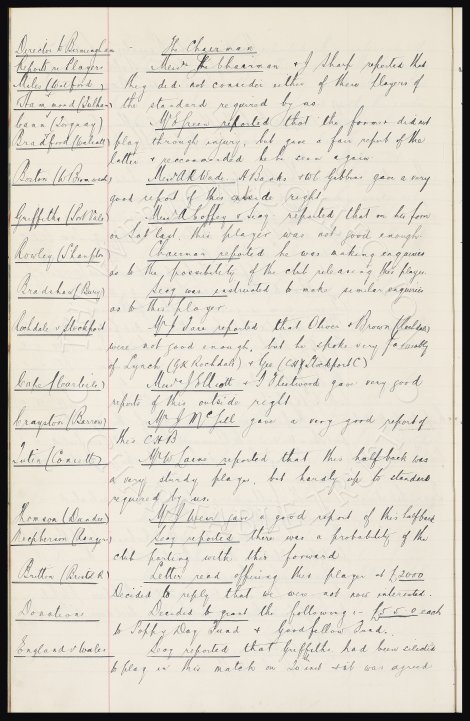 Director to Birmingham - The Chairman
Reports re Players Messrs The Chairman & J Sharp reported that
Miles (Watford) they did not consider either of these players of
Hammond (Fulham) the standard required by us
Cann (Torquay) Mr Green reported that the former did not
Bradford (Walsall) play through injury, but gave a fair report of the
latter & recommended he be seen again
Boston (W. Bromwich) Messrs A R Wade, H Banks & W C Gibbins gave a very
good report of this outside right
Griffiths (Port Vale) Messrs A Coffey & Secy reported that on his form
on Sat last, this player was not good enough
Rowley (S'hampton) Chairman reported he was making enquiries
as to the possibility of the club releasing this player
Bradshaw (Bury) Secy was instructed to make similar enquiries
as to this player
Rochdale v Stockport Mr J Fare reported that Oliver & Brown
were not good enough, but he spoke very favourably
of Lynch (GK Rochdale) & Gee (CH Stockport C)
Cape (Carlisle) Messrs J Elliott & J Fleetwood gave very good
reports of this outside right
Crayston (Barrow) Mr J McGill gave a very good report of
this CHB
(Consett) Mr W reported that this half back was
a very sturdy player, but hardly up to standard
required by us.
Thomson (Dundee) Mr J Weir gave a good report of this half back
Macpherson (Rangers) Secy reported there was a probability of the
club parting with this forward
Britton (Bristol R) Letter read offering this player at £2000
Decided to reply that we were not now interested.
Donations Decided to grant the following :- £5.5.0 each
to Poppy Day Fund & Goodfellow Fund.
England v Wales Secy reported that Griffiths had been selected
to play in this match on inst & it was agreed